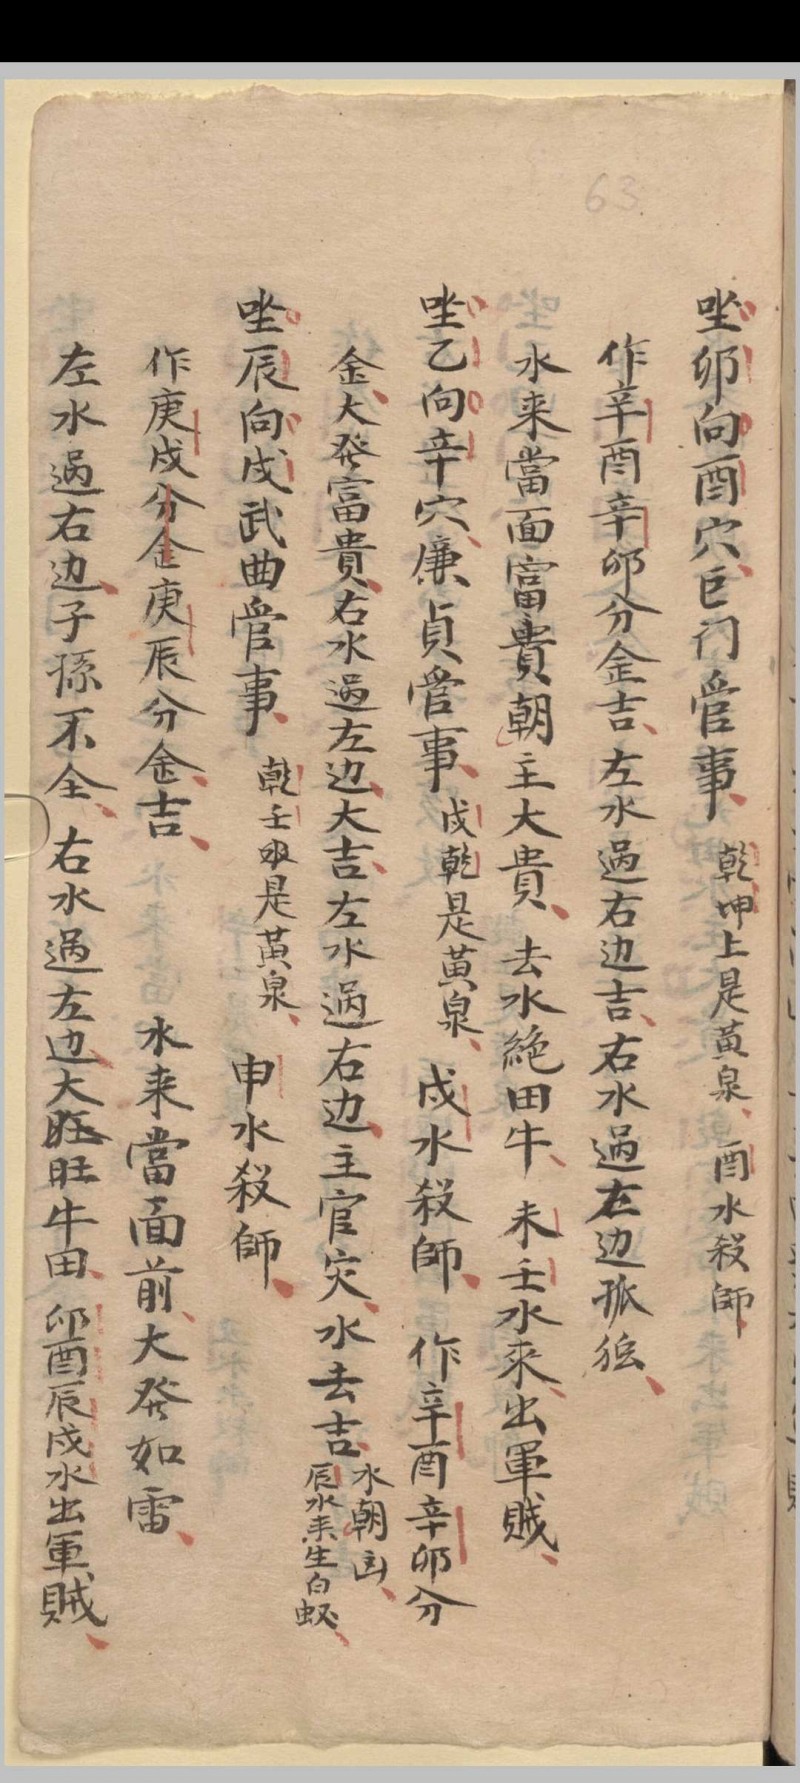 63
坐卯向酉穴巨门管事 乾坤上是黄泉 酉水殺師
作辛酉辛卯分金吉左水過右边吉右水過左边孤
水来當面富貴朝主大貴 去水絶田牛 未壬水來出軍賊
坐乙向辛穴廉貞管事 戌乾是黄泉 戌水殺師 作辛酉辛卯分
金大発富貴右水過左边大吉左水過右边主官灾水去吉 水朝凶
辰水来生白蚁
坐辰向戌武曲管事 乾壬艰是黄泉 申水殺師
作庚戌分金庚辰分金吉 水来當面前大発如雷
左水過右边子孫不全 右水過左边大旺旺牛田 卯酉辰戌水出軍賊